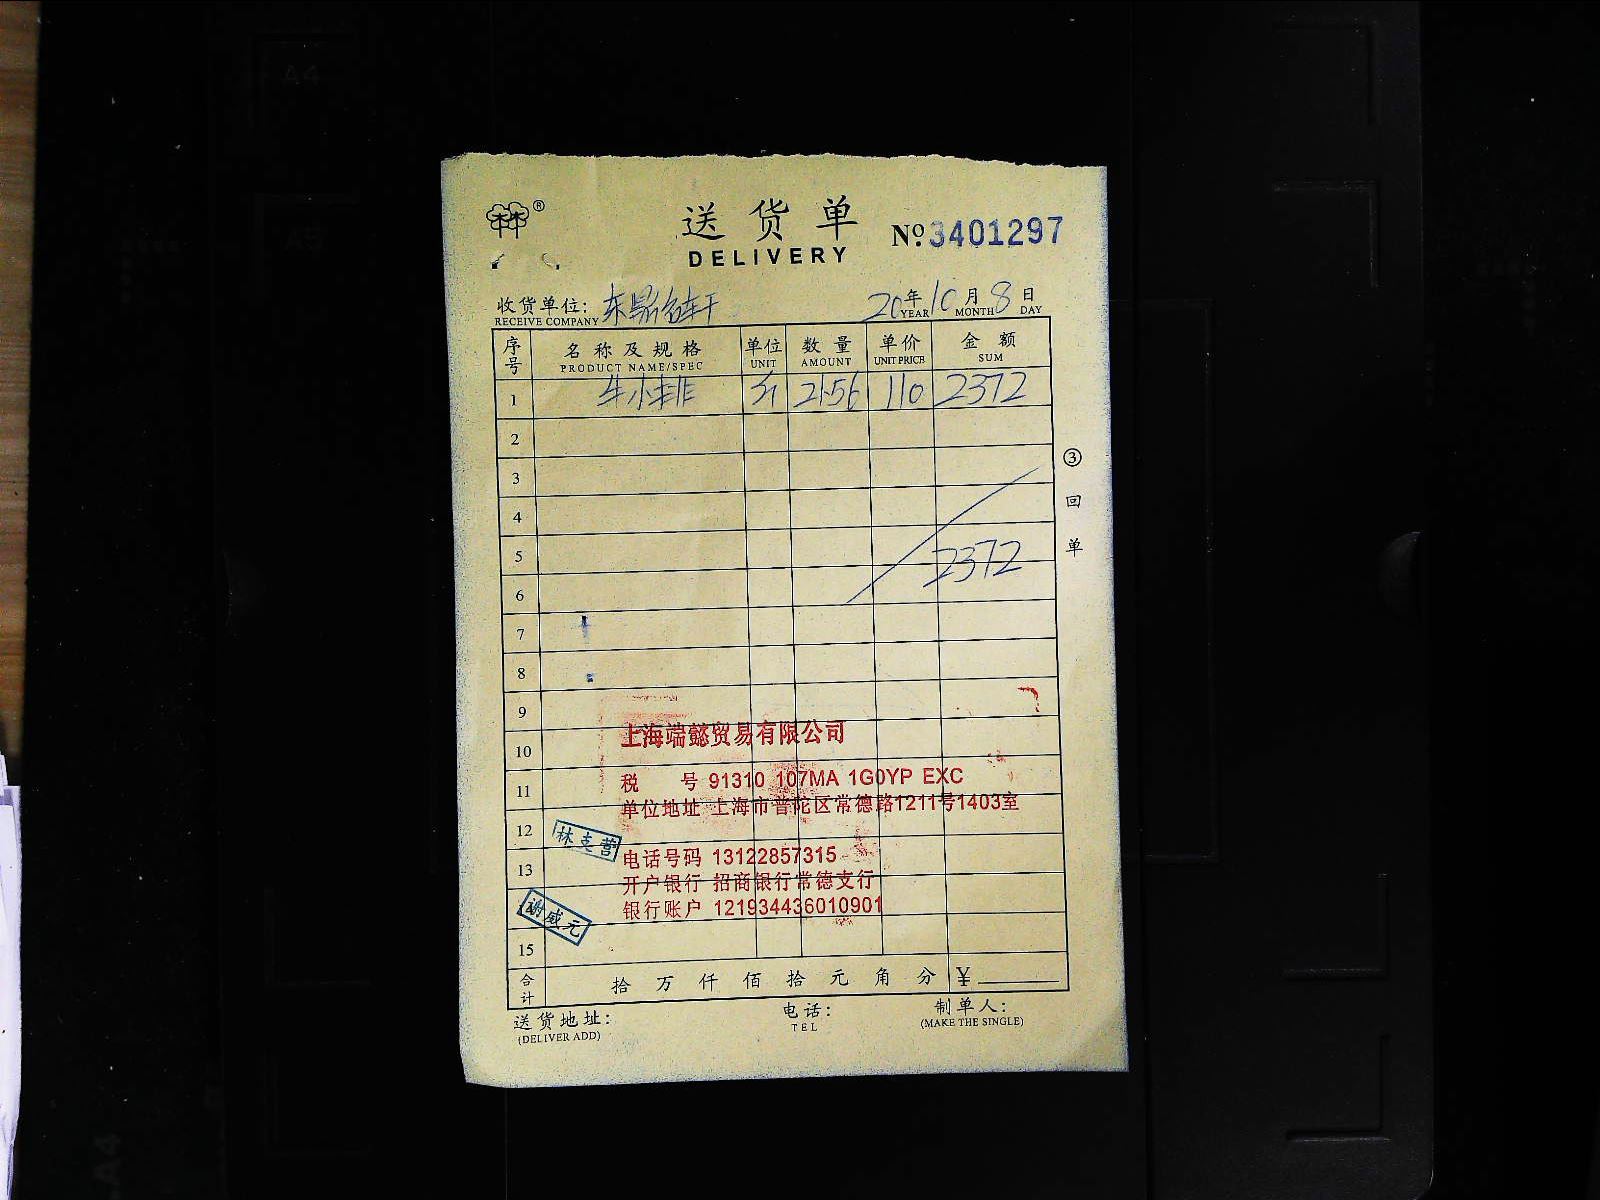 送货单
DELIVERY
№3401297
收货单位: 东鼎名轩 20年10月8日
RECEIVE COMPANY YEAR MONTH DAY
序号 名称及规格 单位 数量 单价 金额
PRODUCT NAME/SPEC UNIT AMOUNT UNIT PRICE SUM
1 牛小排 斤 21.56 110 2372
2
3
4
5 2372
6
7
8
9
10
11
12
13
15
③回单
上海端懿贸易有限公司
税 号 91310 107MA 1G0YP EXC
单位地址 上海市普陀区常德路1211号1403室
林支营
电话号码 13122857315
开户银行 招商银行常德支行
谢威元
银行账户 121934436010901
合计 拾 万 仟 佰 拾 元 角 分 ¥
送货地址: 电话: 制单人:
(DELIVER ADD) TEL (MAKE THE SINGLE)
A4
A5
A4